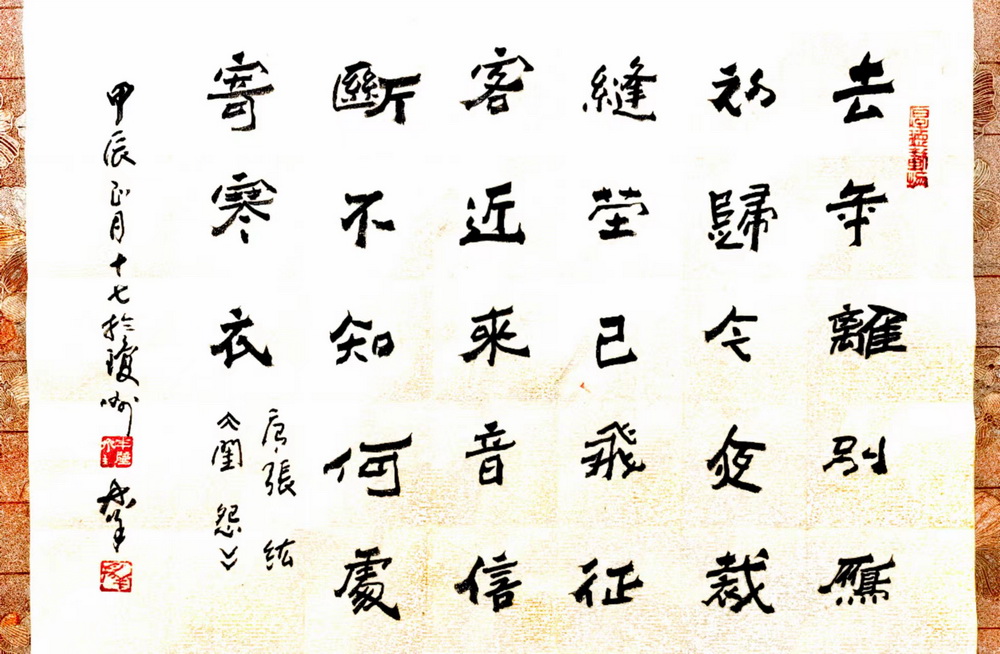 去年離別鴈
初歸今夜裁
縫萤已飛征
客近來音信
斷不知何處
寄寒衣
唐·張紘
《閨怨》
甲辰正月十七於瓊州